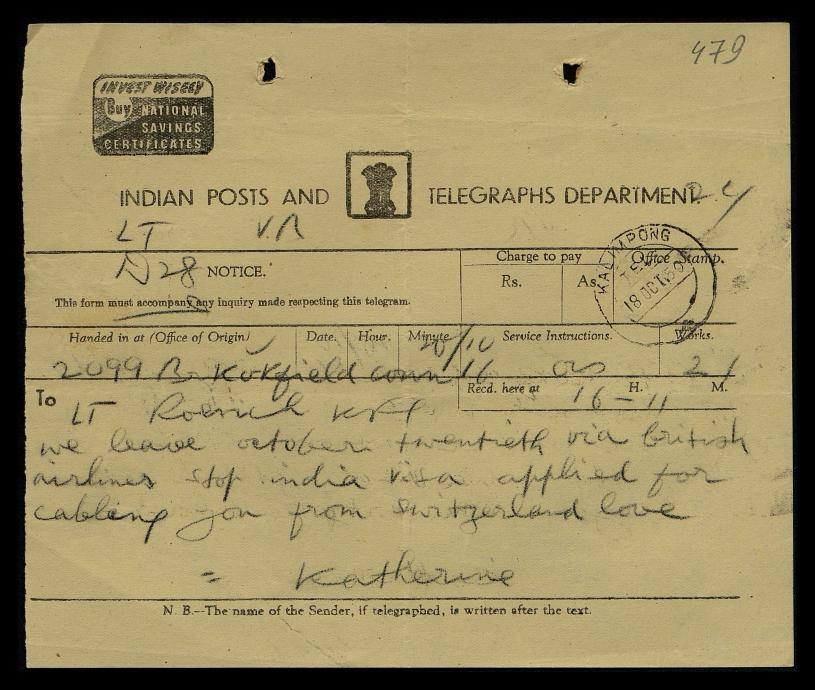 479
INVEST WISELY
Buy NATIONAL
SAVINGS
CERTIFICATES
INDIAN POSTS AND TELEGRAPHS DEPARTMENT.
LT
28 NOTICE.
Charge to pay
Office Stamp.
Rs. As.
KALIMPONG
18 OCT 50
This form must accompany any inquiry made respecting this telegram.
Handed in at (Office of Origin) Date. Hour. Minute. Service Instructions. Works.
2099 B Kokfield conn 16 21
Recd. here at 16-11 H. M.
To
LT Roerich KPG
we leave october twentieth via british
airlines stop india visa applied for
cabling you from switzerland love
= Katherine
N. B.--The name of the Sender, if telegraphed, is written after the text.